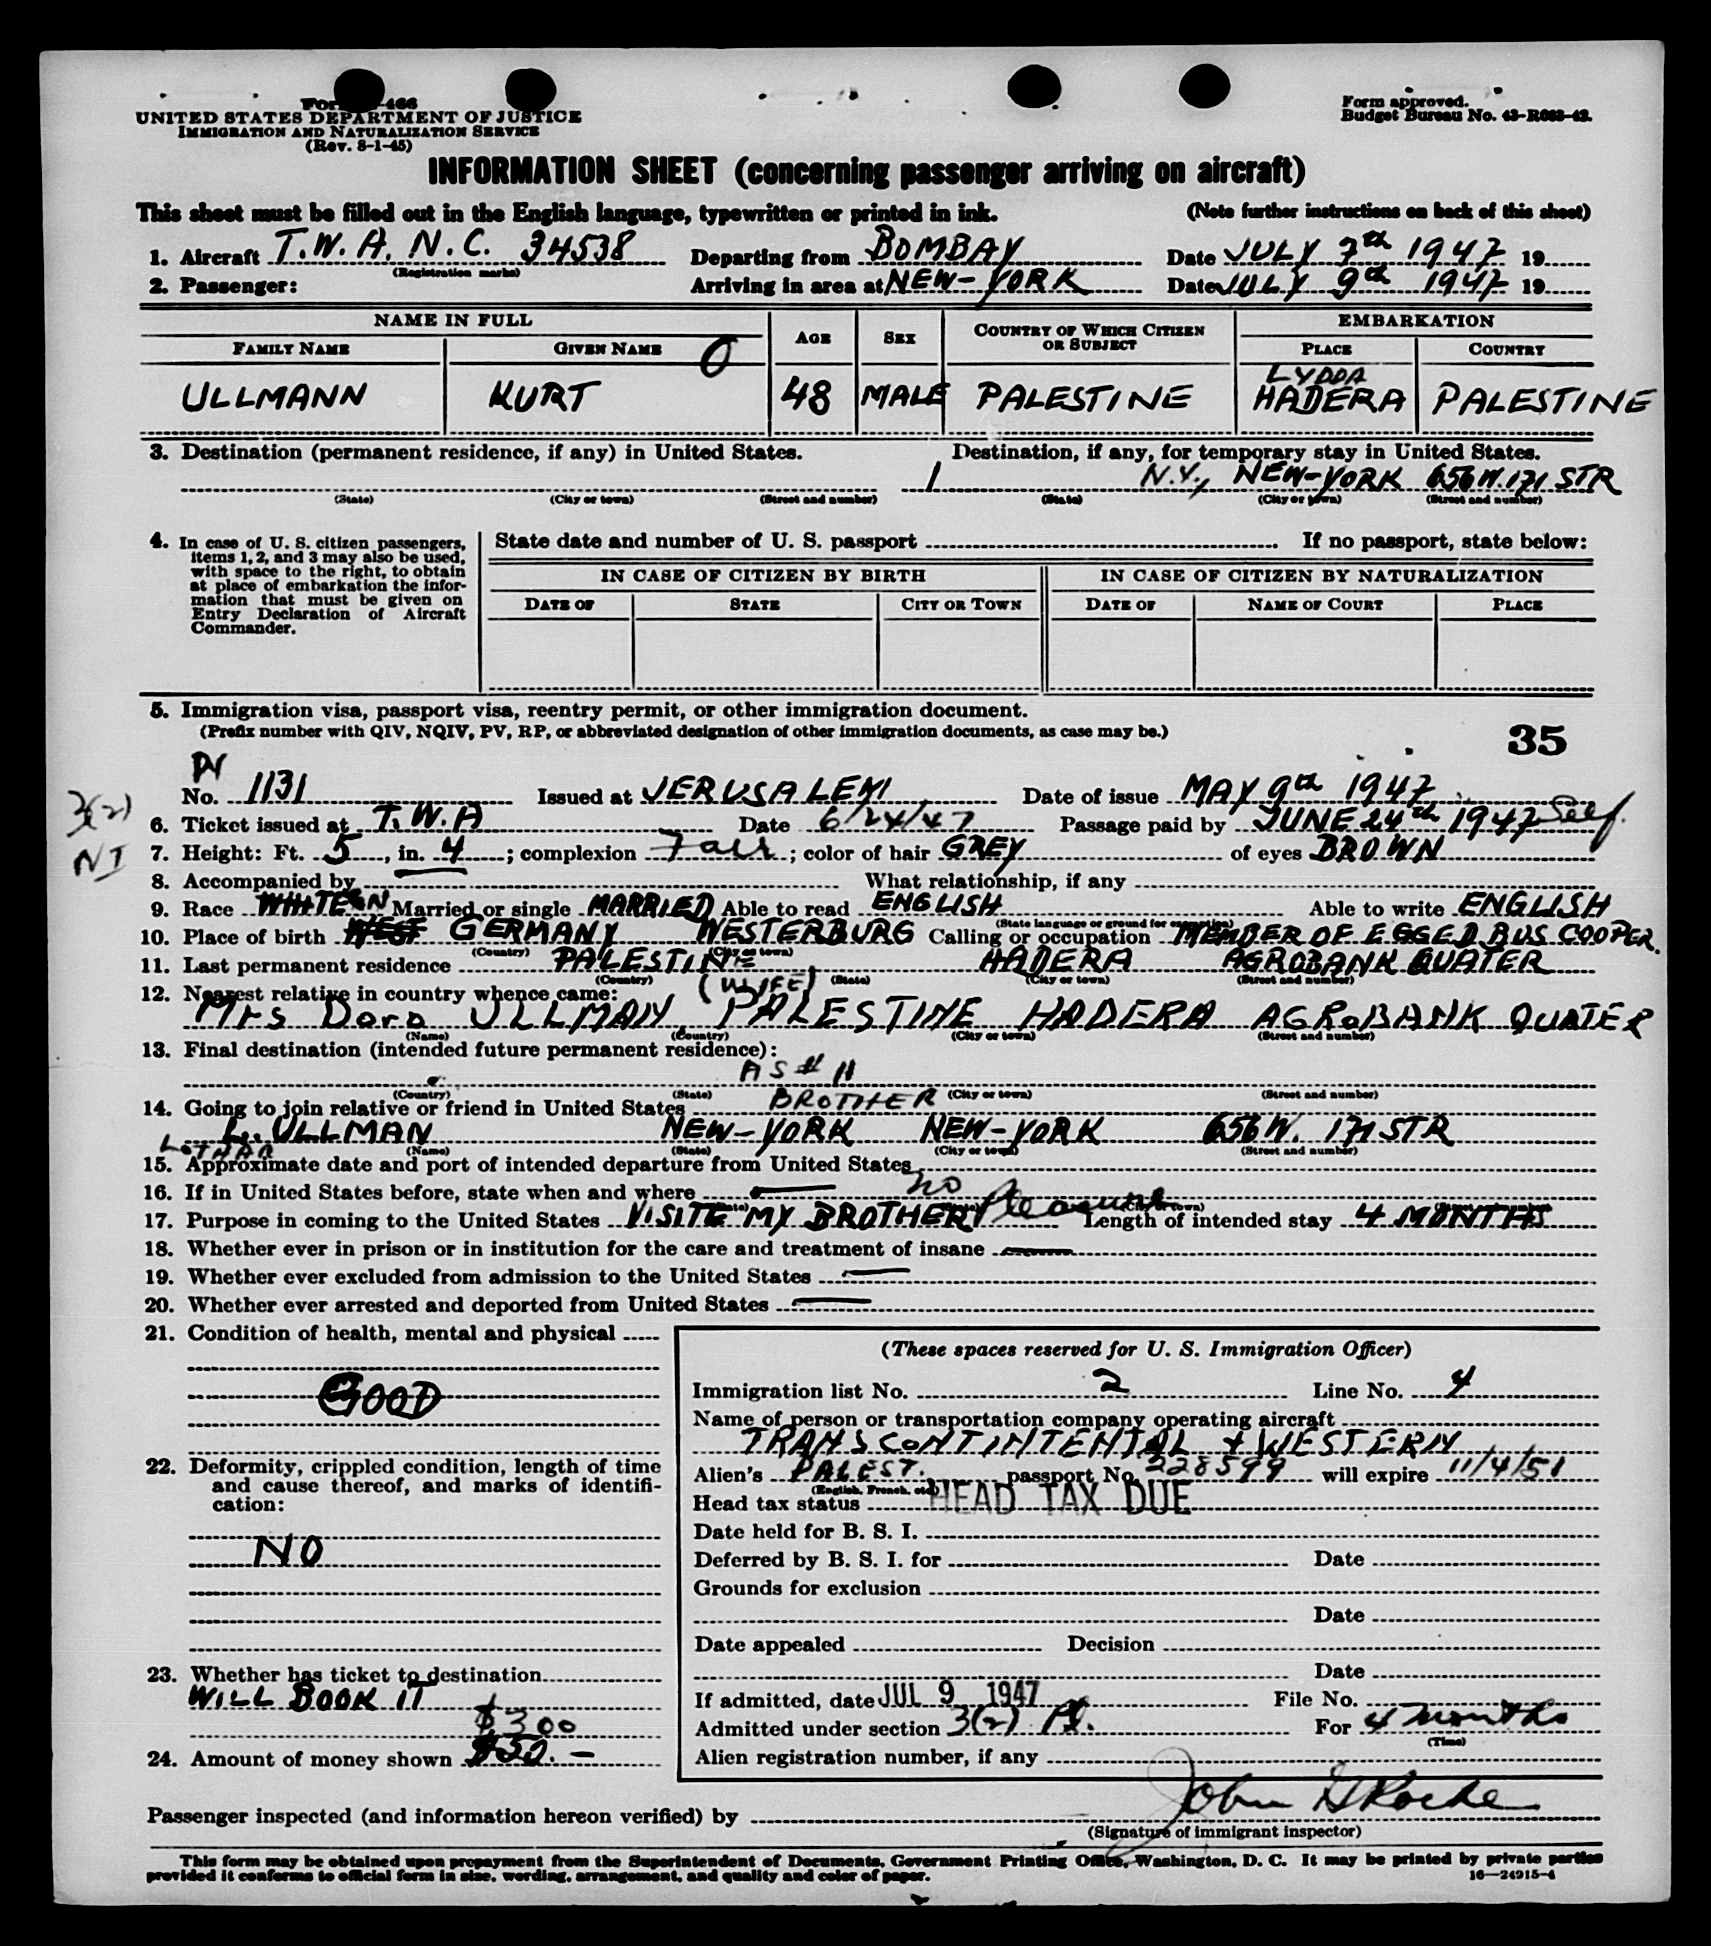 UNITED STATES DEPARTMENT OF JUSTICE
IMMIGRATION AND NATURALIZATION SERVICE
(Rev. 8-1-45)
Form approved.
Budget Bureau No.
INFORMATION SHEET (concerning passenger arriving on aircraft)
This sheet must be filled out in the English language, typewritten or printed in ink. (Note further instructions on back of this sheet)
1. Aircraft T.W.A. N.C. 34538 Departing from BOMBAY Date JULY 7th 1947 19
(Registration marks)
2. Passenger: Arriving in area at NEW-YORK Date JULY 9th 1947 19
NAME IN FULL AGE SEX COUNTRY OF WHICH CITIZEN OR SUBJECT EMBARKATION
FAMILY NAME GIVEN NAME PLACE COUNTRY
0
LYDDA
ULLMANN KURT 48 MALE PALESTINE HADERA PALESTINE
3. Destination (permanent residence, if any) in United States. Destination, if any, for temporary stay in United States.
1 N.Y., NEW-YORK 656 W. 171 STR
(State) (City or town) (Street and number) (State) (City or town) (Street and number)
4. In case of U. S. citizen passengers,
items 1, 2, and 3 may also be used,
with space to the right, to obtain
at place of embarkation the infor-
mation that must be given on
Entry Declaration of Aircraft
Commander.
State date and number of U. S. passport If no passport, state below:
IN CASE OF CITIZEN BY BIRTH IN CASE OF CITIZEN BY NATURALIZATION
DATE OF STATE CITY OR TOWN DATE OF NAME OF COURT PLACE
5. Immigration visa, passport visa, reentry permit, or other immigration document.
(Prefix number with QIV, NQIV, PV, RP, or abbreviated designation of other immigration documents, as case may be.)
35
PV
No. 1131 Issued at JERUSALEM Date of issue MAY 9th 1947
3(2)
6. Ticket issued at T.W.A Date 6/24/47 Passage paid by JUNE 24th 1947 Self.
NI
7. Height: Ft. 5, in. 4; complexion Fair; color of hair GREY of eyes BROWN
8. Accompanied by What relationship, if any
9. Race WHITE Married or single MARRIED Able to read ENGLISH Able to write ENGLISH
(State language or ground for exemption)
10. Place of birth WEST GERMANY WESTERBURG Calling or occupation MEMBER OF EGGED BUS COOPER.
(Country) (City or town)
11. Last permanent residence PALESTINE HADERA AGROBANK QUATER
(Country) (State) (City or town) (Street and number)
12. Nearest relative in country whence came: (WIFE)
Mrs Dora ULLMAN PALESTINE HADERA AGROBANK QUATER
(Name) (Country) (City or town) (Street and number)
13. Final destination (intended future permanent residence):
AS # 11
(Country) (State) (City or town) (Street and number)
14. Going to join relative or friend in United States BROTHER
L. ULLMAN NEW-YORK NEW-YORK 656 W. 171 STR
LOTHAR
(Name) (State) (City or town) (Street and number)
15. Approximate date and port of intended departure from United States
16. If in United States before, state when and where no
17. Purpose in coming to the United States VISITE MY BROTHER Pleasure Length of intended stay 4 MONTHS
18. Whether ever in prison or in institution for the care and treatment of insane
19. Whether ever excluded from admission to the United States
20. Whether ever arrested and deported from United States
21. Condition of health, mental and physical
GOOD
22. Deformity, crippled condition, length of time
and cause thereof, and marks of identifi-
cation:
NO
23. Whether has ticket to destination
WILL BOOK IT
$300
24. Amount of money shown $50.-
(These spaces reserved for U. S. Immigration Officer)
Immigration list No. 2 Line No. 4
Name of person or transportation company operating aircraft
TRANSCONTINTENTAL + WESTERN
Alien's PALEST. passport No. 228599 will expire 11/4/51
(English, French, etc.)
Head tax status HEAD TAX DUE
Date held for B. S. I.
Deferred by B. S. I. for Date
Grounds for exclusion
Date
Date appealed Decision
Date
If admitted, date JUL 9 1947 File No.
Admitted under section 3(2) Pl. For 4 months
(Time)
Alien registration number, if any
Passenger inspected (and information hereon verified) by John Roche
(Signature of immigrant inspector)
This form may be obtained upon prepayment from the Superintendent of Documents, Government Printing Office, Washington, D. C. It may be printed by private parties
provided it conforms to official form in size, wording, arrangement, and quality and color of paper.
16—24915-4